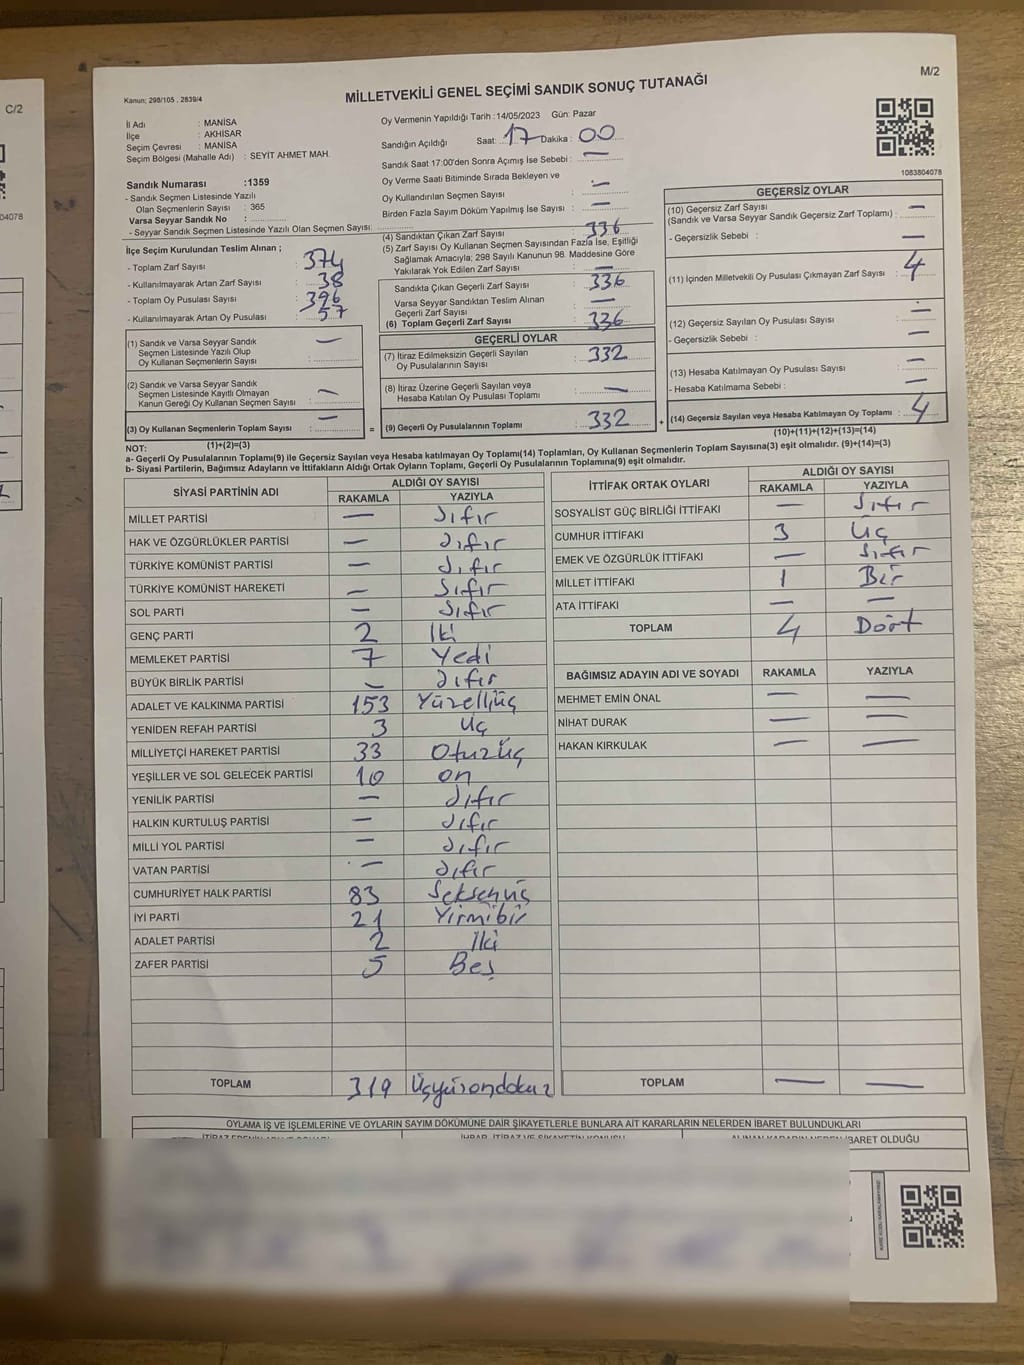 C/2
04078
M/2
Kanun; 298/105 , 2839/4
MİLLETVEKİLİ GENEL SEÇİMİ SANDIK SONUÇ TUTANAĞI
İl Adı : MANİSA
İlçe : AKHİSAR
Seçim Çevresi : MANİSA
Seçim Bölgesi (Mahalle Adı) : SEYİT AHMET MAH.
Oy Vermenin Yapıldığı Tarih :14/05/2023 Gün: Pazar
Sandığın Açıldığı Saat: 17 Dakika : 00
Sandık Saat 17:00'den Sonra Açımış İse Sebebi : —
Oy Verme Saati Bitiminde Sırada Bekleyen ve
Oy Kullandırılan Seçmen Sayısı : —
Birden Fazla Sayım Döküm Yapılmış İse Sayısı : —
1083804078
Sandık Numarası :1359
- Sandık Seçmen Listesinde Yazılı
Olan Seçmenlerin Sayısı : 365
Varsa Seyyar Sandık No :
- Seyyar Sandık Seçmen Listesinde Yazılı Olan Seçmen Sayısı:
İlçe Seçim Kurulundan Teslim Alınan ;
- Toplam Zarf Sayısı : 374
- Kullanılmayarak Artan Zarf Sayısı : 38
- Toplam Oy Pusulası Sayısı : 396
- Kullanılmayarak Artan Oy Pusulası : 57
(1) Sandık ve Varsa Seyyar Sandık
Seçmen Listesinde Yazılı Olup
Oy Kullanan Seçmenlerin Sayısı : —
(2) Sandık ve Varsa Seyyar Sandık
Seçmen Listesinde Kayıtlı Olmayan
Kanun Gereği Oy Kullanan Seçmen Sayısı : —
(3) Oy Kullanan Seçmenlerin Toplam Sayısı : —
(1)+(2)=(3)
(4) Sandıktan Çıkan Zarf Sayısı : 336
(5) Zarf Sayısı Oy Kullanan Seçmen Sayısından Fazla İse, Eşitliği
Sağlamak Amacıyla; 298 Sayılı Kanunun 98. Maddesine Göre
Yakılarak Yok Edilen Zarf Sayısı : —
Sandıkta Çıkan Geçerli Zarf Sayısı : 336
Varsa Seyyar Sandıktan Teslim Alınan
Geçerli Zarf Sayısı : —
(6) Toplam Geçerli Zarf Sayısı : 336
GEÇERLİ OYLAR
(7) İtiraz Edilmeksizin Geçerli Sayılan
Oy Pusulalarının Sayısı : 332
(8) İtiraz Üzerine Geçerli Sayılan veya
Hesaba Katılan Oy Pusulası Toplamı : —
= (9) Geçerli Oy Pusulalarının Toplamı : 332
GEÇERSİZ OYLAR
(10) Geçersiz Zarf Sayısı
(Sandık ve Varsa Seyyar Sandık Geçersiz Zarf Toplamı) : —
- Geçersizlik Sebebi : —
(11) İçinden Milletvekili Oy Pusulası Çıkmayan Zarf Sayısı : 4
(12) Geçersiz Sayılan Oy Pusulası Sayısı : —
- Geçersizlik Sebebi : —
(13) Hesaba Katılmayan Oy Pusulası Sayısı : —
- Hesaba Katılmama Sebebi : —
+ (14) Geçersiz Sayılan veya Hesaba Katılmayan Oy Toplamı : 4
(10)+(11)+(12)+(13)=(14)
NOT:
a- Geçerli Oy Pusulalarının Toplamı(9) ile Geçersiz Sayılan veya Hesaba katılmayan Oy Toplamı(14) Toplamları, Oy Kullanan Seçmenlerin Toplam Sayısına(3) eşit olmalıdır. (9)+(14)=(3)
b- Siyasi Partilerin, Bağımsız Adayların ve İttifakların Aldığı Ortak Oyların Toplamı, Geçerli Oy Pusulalarının Toplamına(9) eşit olmalıdır.
SİYASİ PARTİNİN ADI ALDIĞI OY SAYISI
RAKAMLA YAZIYLA
MİLLET PARTİSİ — Sıfır
HAK VE ÖZGÜRLÜKLER PARTİSİ — Sıfır
TÜRKİYE KOMÜNİST PARTİSİ — Sıfır
TÜRKİYE KOMÜNİST HAREKETİ — Sıfır
SOL PARTİ — Sıfır
GENÇ PARTİ 2 İki
MEMLEKET PARTİSİ 7 Yedi
BÜYÜK BİRLİK PARTİSİ — Sıfır
ADALET VE KALKINMA PARTİSİ 153 Yüzelliüç
YENİDEN REFAH PARTİSİ 3 Üç
MİLLİYETÇİ HAREKET PARTİSİ 33 Otuzüç
YEŞİLLER VE SOL GELECEK PARTİSİ 10 on
YENİLİK PARTİSİ — Sıfır
HALKIN KURTULUŞ PARTİSİ — Sıfır
MİLLİ YOL PARTİSİ — Sıfır
VATAN PARTİSİ — Sıfır
CUMHURİYET HALK PARTİSİ 83 Seksenüç
İYİ PARTİ 21 Yirmibir
ADALET PARTİSİ 2 İki
ZAFER PARTİSİ 5 Beş
TOPLAM 319 Üçyüzondokuz
İTTİFAK ORTAK OYLARI ALDIĞI OY SAYISI
RAKAMLA YAZIYLA
SOSYALİST GÜÇ BİRLİĞİ İTTİFAKI — Sıfır
CUMHUR İTTİFAKI 3 Üç
EMEK VE ÖZGÜRLÜK İTTİFAKI — Sıfır
MİLLET İTTİFAKI 1 Bir
ATA İTTİFAKI — —
TOPLAM 4 Dört
BAĞIMSIZ ADAYIN ADI VE SOYADI RAKAMLA YAZIYLA
MEHMET EMİN ÖNAL — —
NİHAT DURAK — —
HAKAN KIRKULAK — —
TOPLAM — —
OYLAMA İŞ VE İŞLEMLERİNE VE OYLARIN SAYIM DÖKÜMÜNE DAİR ŞİKAYETLERLE BUNLARA AİT KARARLARIN NELERDEN İBARET BULUNDUKLARI
İBARET OLDUĞU